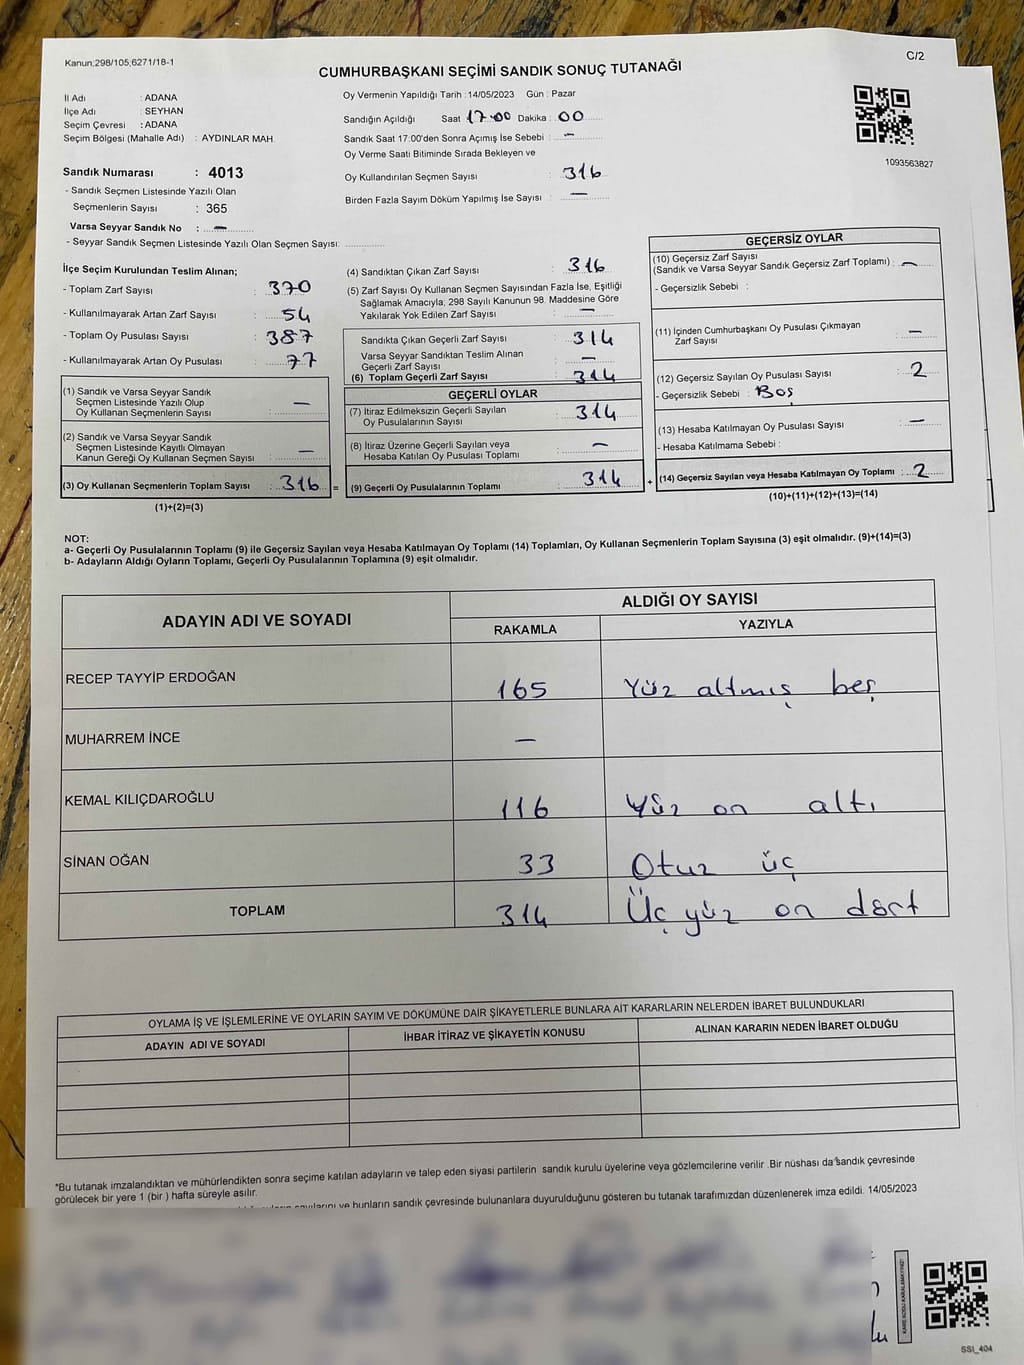 Kanun;298/105;6271/18-1
C/2
CUMHURBAŞKANI SEÇİMİ SANDIK SONUÇ TUTANAĞI
İl Adı : ADANA
İlçe Adı : SEYHAN
Seçim Çevresi : ADANA
Seçim Bölgesi (Mahalle Adı) : AYDINLAR MAH.
Oy Vermenin Yapıldığı Tarih : 14/05/2023 Gün : Pazar
Sandığın Açıldığı Saat 17.00 Dakika : 00
Sandık Saat 17:00'den Sonra Açımış İse Sebebi : —
Oy Verme Saati Bitiminde Sırada Bekleyen ve
Oy Kullandırılan Seçmen Sayısı : 316
Birden Fazla Sayım Döküm Yapılmış İse Sayısı : —
1093563827
Sandık Numarası : 4013
- Sandık Seçmen Listesinde Yazılı Olan
Seçmenlerin Sayısı : 365
Varsa Seyyar Sandık No : —
- Seyyar Sandık Seçmen Listesinde Yazılı Olan Seçmen Sayısı:
İlçe Seçim Kurulundan Teslim Alınan;
- Toplam Zarf Sayısı : 370
- Kullanılmayarak Artan Zarf Sayısı : 54
- Toplam Oy Pusulası Sayısı : 387
- Kullanılmayarak Artan Oy Pusulası : 77
(1) Sandık ve Varsa Seyyar Sandık
Seçmen Listesinde Yazılı Olup
Oy Kullanan Seçmenlerin Sayısı : —
(2) Sandık ve Varsa Seyyar Sandık
Seçmen Listesinde Kayıtlı Olmayan
Kanun Gereği Oy Kullanan Seçmen Sayısı : —
(3) Oy Kullanan Seçmenlerin Toplam Sayısı : 316 =
(1)+(2)=(3)
(4) Sandıktan Çıkan Zarf Sayısı : 316
(5) Zarf Sayısı Oy Kullanan Seçmen Sayısından Fazla İse, Eşitliği
Sağlamak Amacıyla; 298 Sayılı Kanunun 98. Maddesine Göre
Yakılarak Yok Edilen Zarf Sayısı : —
Sandıkta Çıkan Geçerli Zarf Sayısı : 314
Varsa Seyyar Sandıktan Teslim Alınan
Geçerli Zarf Sayısı : —
(6) Toplam Geçerli Zarf Sayısı : 314
GEÇERLİ OYLAR
(7) İtiraz Edilmeksizin Geçerli Sayılan
Oy Pusulalarının Sayısı : 314
(8) İtiraz Üzerine Geçerli Sayılan veya
Hesaba Katılan Oy Pusulası Toplamı : —
(9) Geçerli Oy Pusulalarının Toplamı : 314 +
GEÇERSİZ OYLAR
(10) Geçersiz Zarf Sayısı
(Sandık ve Varsa Seyyar Sandık Geçersiz Zarf Toplamı) : —
- Geçersizlik Sebebi :
(11) İçinden Cumhurbaşkanı Oy Pusulası Çıkmayan
Zarf Sayısı : —
(12) Geçersiz Sayılan Oy Pusulası Sayısı : 2
- Geçersizlik Sebebi : Boş
(13) Hesaba Katılmayan Oy Pusulası Sayısı : —
- Hesaba Katılmama Sebebi :
(14) Geçersiz Sayılan veya Hesaba Katılmayan Oy Toplamı : 2
(10)+(11)+(12)+(13)=(14)
NOT:
a- Geçerli Oy Pusulalarının Toplamı (9) ile Geçersiz Sayılan veya Hesaba Katılmayan Oy Toplamı (14) Toplamları, Oy Kullanan Seçmenlerin Toplam Sayısına (3) eşit olmalıdır. (9)+(14)=(3)
b- Adayların Aldığı Oyların Toplamı, Geçerli Oy Pusulalarının Toplamına (9) eşit olmalıdır.
ADAYIN ADI VE SOYADI
ALDIĞI OY SAYISI
RAKAMLA YAZIYLA
RECEP TAYYİP ERDOĞAN 165 Yüz altmış beş
MUHARREM İNCE —
KEMAL KILIÇDAROĞLU 116 Yüz on altı
SİNAN OĞAN 33 Otuz üç
TOPLAM 314 Üç yüz on dört
OYLAMA İŞ VE İŞLEMLERİNE VE OYLARIN SAYIM VE DÖKÜMÜNE DAİR ŞİKAYETLERLE BUNLARA AİT KARARLARIN NELERDEN İBARET BULUNDUKLARI
ADAYIN ADI VE SOYADI İHBAR İTİRAZ VE ŞİKAYETİN KONUSU ALINAN KARARIN NEDEN İBARET OLDUĞU
*Bu tutanak imzalandıktan ve mühürlendikten sonra seçime katılan adayların ve talep eden siyasi partilerin sandık kurulu üyelerine veya gözlemcilerine verilir .Bir nüshası da sandık çevresinde
görülecek bir yere 1 (bir ) hafta süreyle asılır.
ve bunların sandık çevresinde bulunanlara duyurulduğunu gösteren bu tutanak tarafımızdan düzenlenerek imza edildi. 14/05/2023
KARE KODU KARALAMAYINIZ!
SSI_404